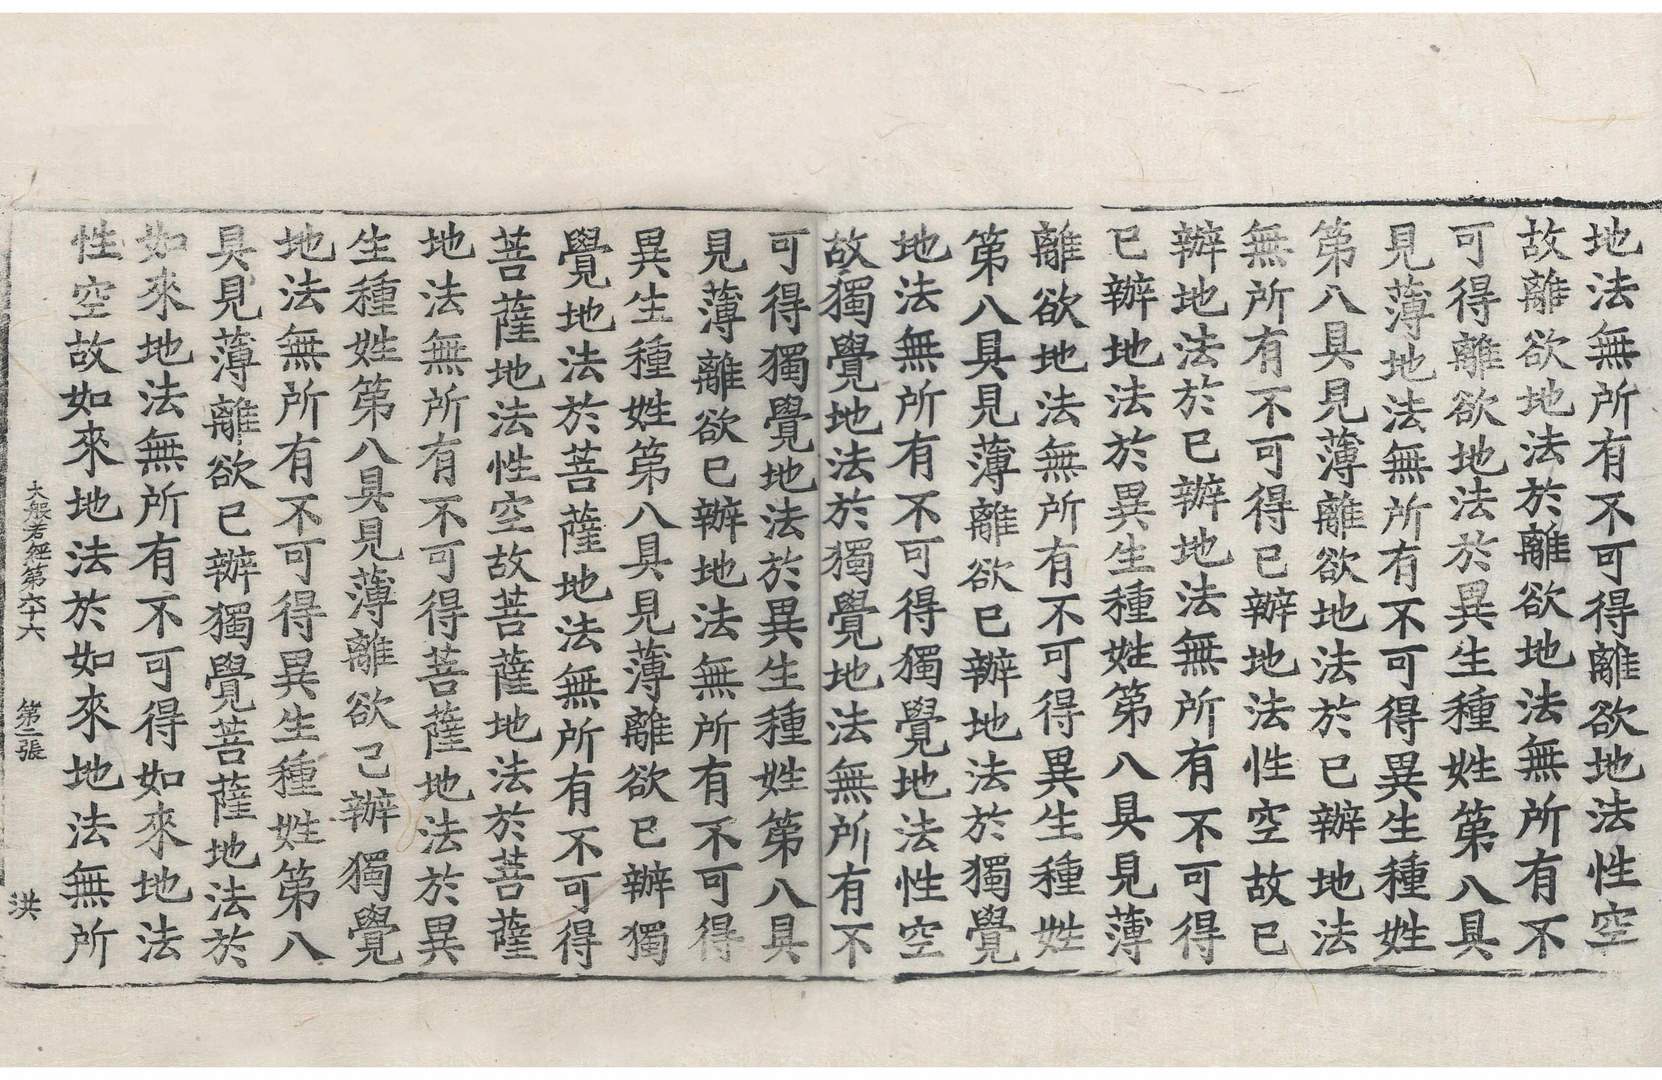 地法無所有不可得離欲地法性空
故離欲地法於離欲地法無所有不
可得離欲地法於異生種姓第八具
見薄地法無所有不可得異生種姓
第八具見薄離欲地法於已辦地法
無所有不可得已辦地法性空故已
辦地法於已辦地法無所有不可得
已辦地法於異生種姓第八具見薄
離欲地法無所有不可得異生種姓
第八具見薄離欲已辦地法於獨覺
地法無所有不可得獨覺地法性空
故獨覺地法於獨覺地法無所有不
可得獨覺地法於異生種姓第八具
見薄離欲已辦地法無所有不可得
異生種姓第八具見薄離欲已辦獨
覺地法於菩薩地法無所有不可得
菩薩地法性空故菩薩地法於菩薩
地法無所有不可得菩薩地法於異
生種姓第八具見薄離欲已辦獨覺
地法無所有不可得異生種姓第八
具見薄離欲已辦獨覺菩薩地法於
如來地法無所有不可得如來地法
性空故如來地法於如來地法無所
大般若經第六十六 第二張 洪